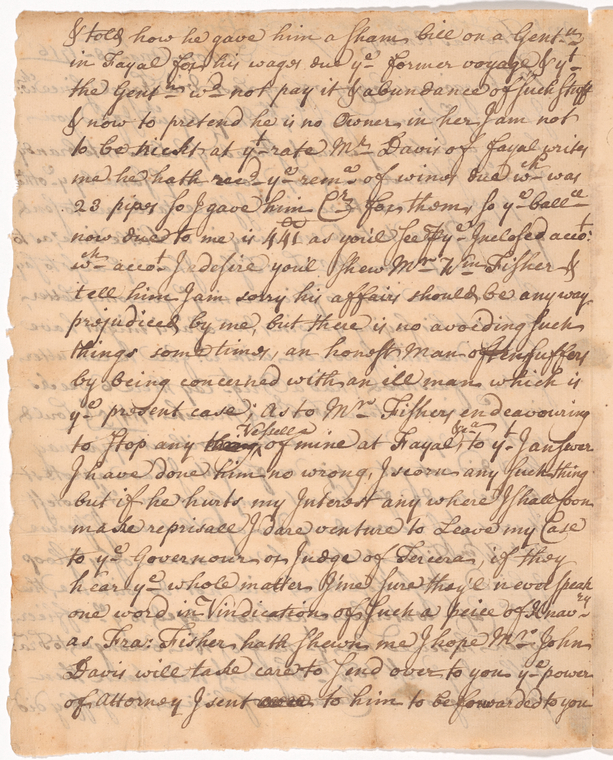 & told how he gave him a sham bill on a Gentn
in Fayal for his wages due ye former voyage & yt
the Gentn wd not pay it & abundance of such Stuff
& now to pretend he is no Owner in her I am not
to be trickt at yt rate Mr Davis of fayal writes
me he hath recd ye remr of wines due wch was
23 pipes so I gave him Cr for them, so ye balla
now due to me is 441 as you'l see p ye Inclosed accot
wch accot I desire you'l shew Mr Wm Fisher &
tell him I am sorry his affairs should be anyway
prejudiced by me, but there is no avoiding such
things sometimes, an honest man often suffers
by being concerned with an ill man which is
ye present case; As to Mr Fishers endeavouring
to stop any Vessells of mine at Fayal, to yt I answer
I have done him no wrong, I scorn any such thing
but if he hurts my Interest any where I shall soon
make reprisall I dare venture to Leave my Case
to ye Governour or Judge of Tercera, if they
hear ye whole matter I'me sure they'l never speak
one word in Vindication of such a peice of Knavry
as Fra: Fisher hath shewn me I hope Mr John
Davis will take care to send over to you ye power
of Attorney I sent to him to be forwarded to you